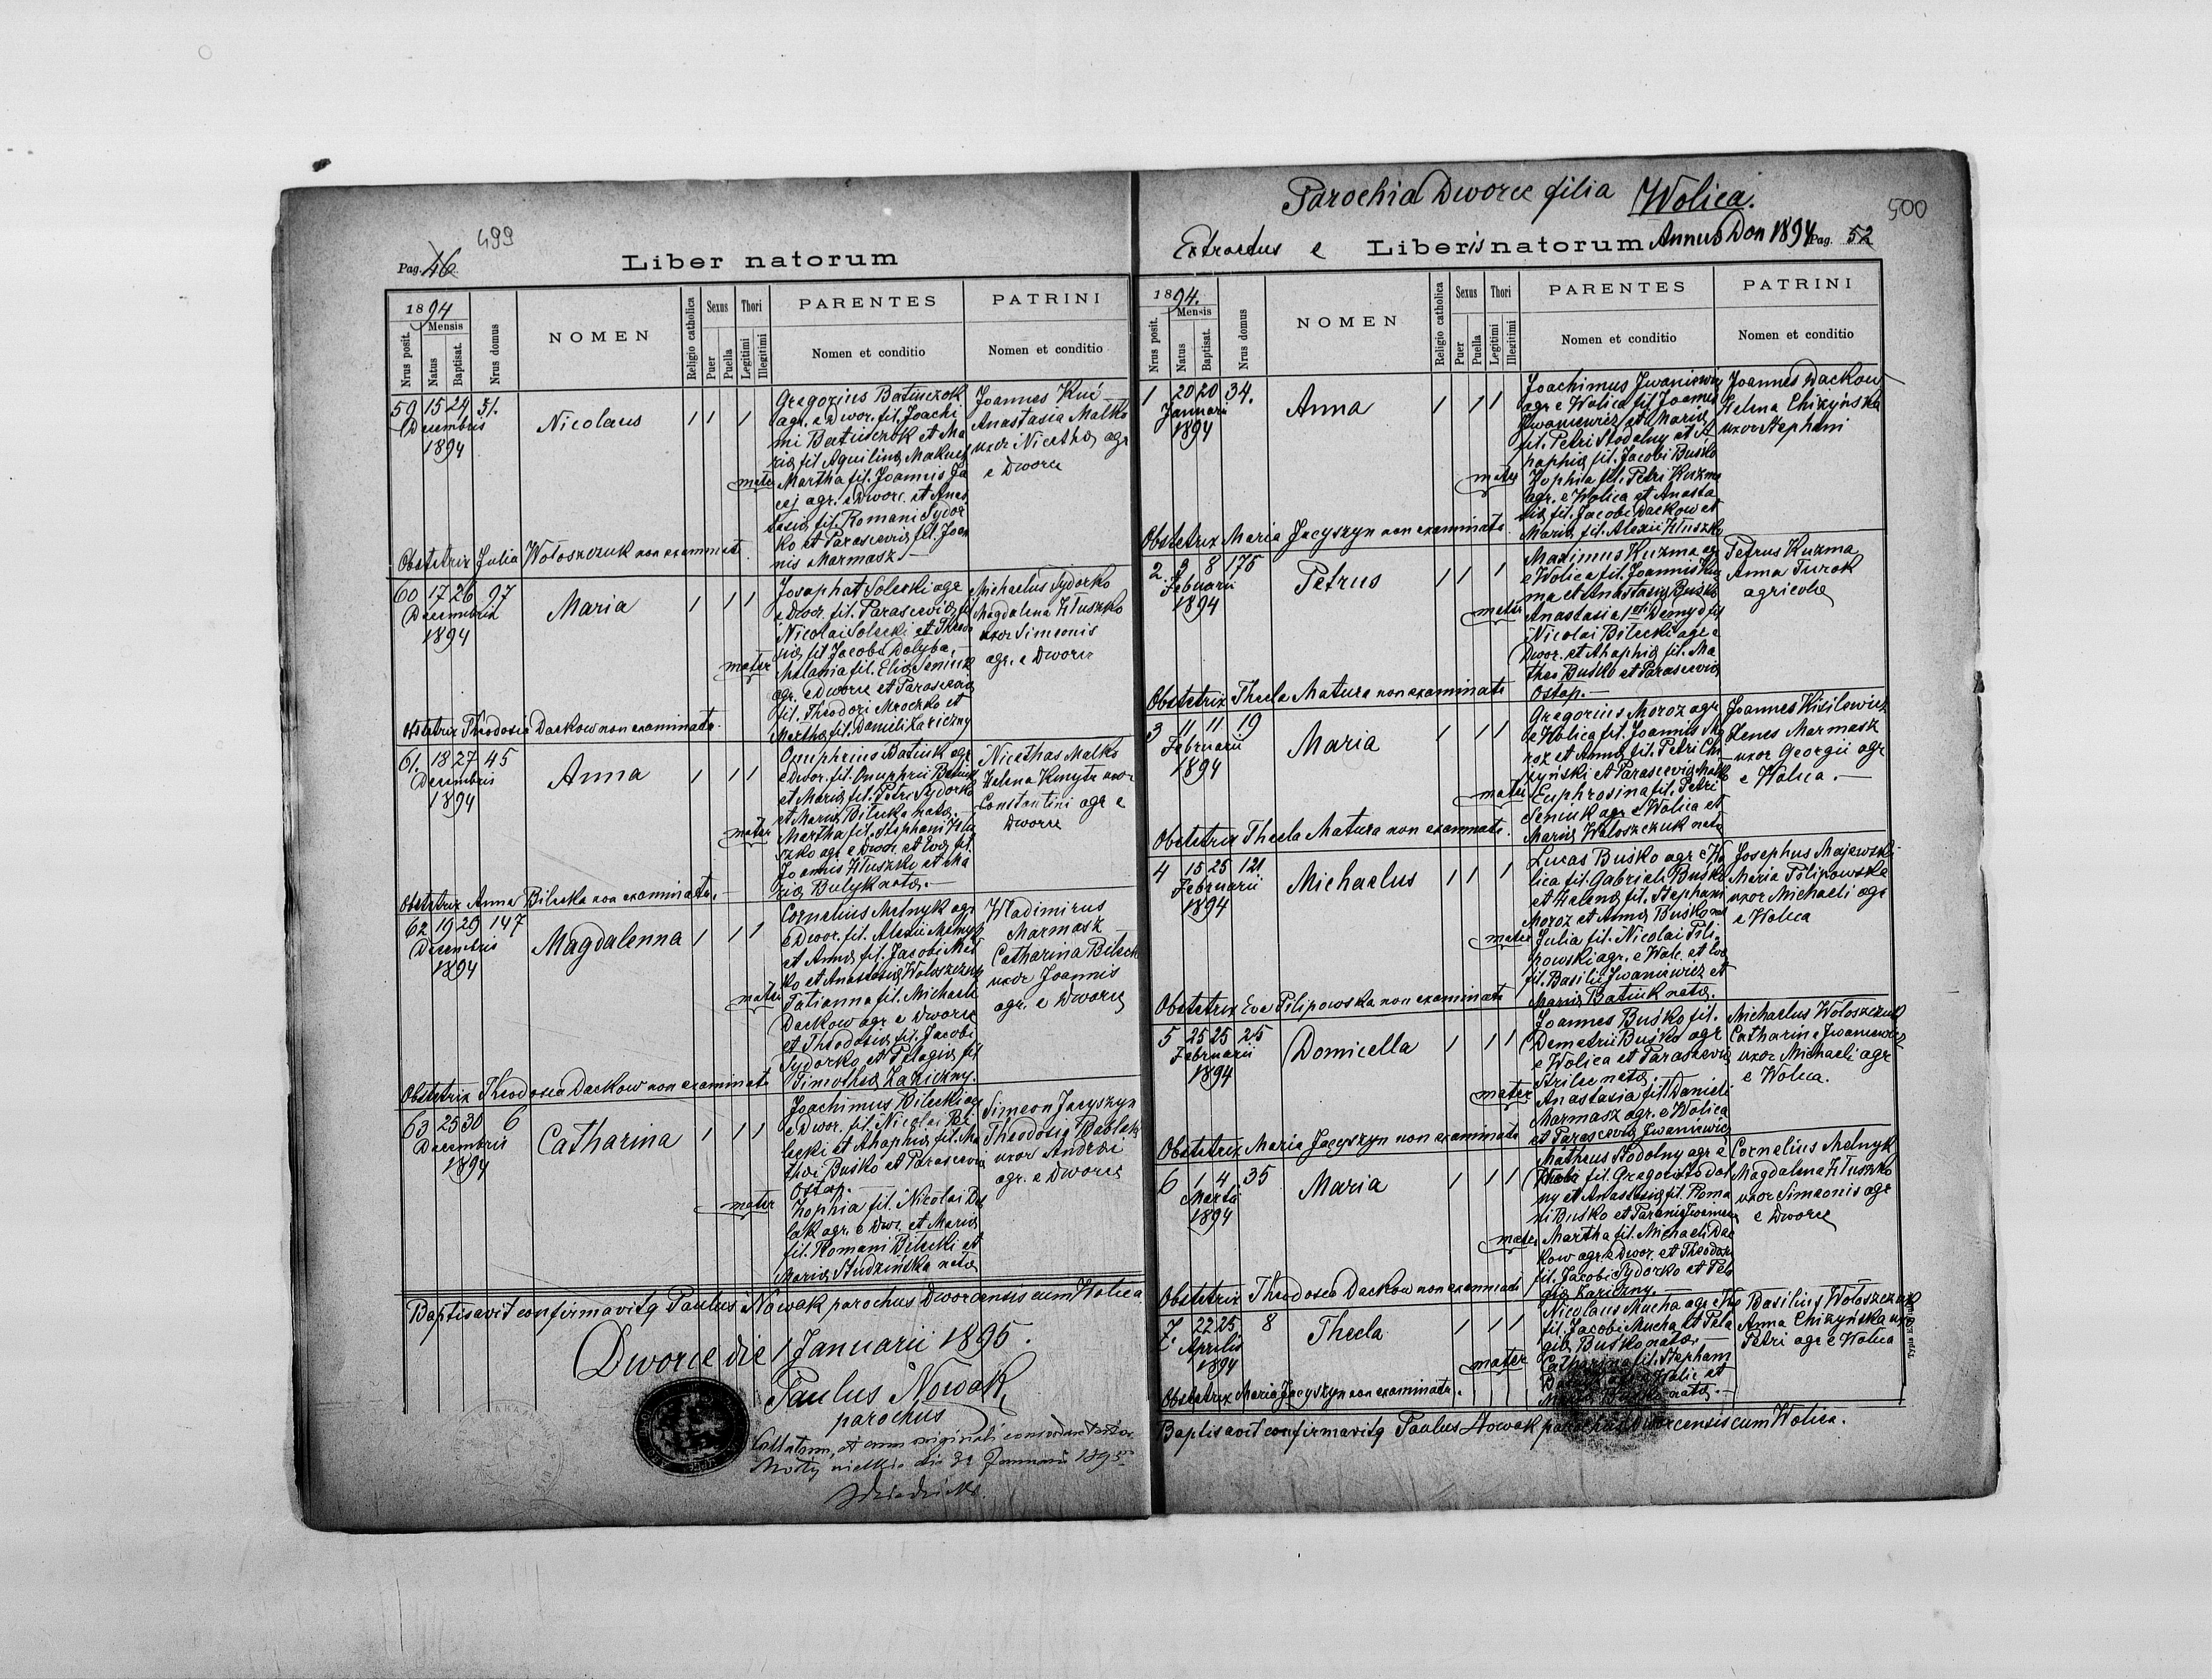 499
Pag. 46
Liber natorum
1894
Mensis
Nrus posit.
Natus
Baptisat.
Nrus domus
NOMEN
Religio catholica
Sexus
Puer
Puella
Thori
Legitimi
Illegitimi
PARENTES
Nomen et conditio
PATRINI
Nomen et conditio
59 15 24 51.
Decembris
1894
Nicolaus
1 1 1
Gregorius Batiuczok
agr. e Dwor. fil. Joachi
mi Batiuczok et Ma
riæ fil Aquilinæ
mater Martha fil. Joannis Ja
cej agr. e Dworc. et Anas
tasiæ fil. Romani Sydor
ko et Parasceviæ fil. Joan
nis Marmasz.
Joannes Kuć
Anastasia Malko
uxor Nicethæ agr
e Dworce
Obstetrix Julia Wołoszczuk non examinata
60 17 26 97
Decembris
1894
Maria
1 1 1
Josaphat Solecki agr
e Dwor. fil. Parasceviæ fil
Nicolai Solecki et Theodo
siæ fil Jacobi Dołyba
mater Melania fil. Eliæ Seniuk
agr. e Dworce et Parasceviæ
fil. Theodori Mroczko et
Marthæ fil. Danieli Zariczny
Michaelus Sydorko
Magdalena Hłuszko
uxor Simeonis
agr. e Dworce
Obstetrix Theodosia Daćkow non examinata.
61. 18 27 45
Decembris
1894
Anna
1 1 1
Onuphrius Batiuk agr
e Dwor. fil. Onuphrii Batiuk
et Mariæ fil. Petri Sydorko
et Mariæ Bilecka natæ.
mater Martha fil. Stephani Hłu
szko agr. e Dwor. et Evæ fil.
Joannis Hłuszko et Ma
riæ Bulyk natæ.
Nicethas Malko
Helena Kmyta uxor
Constantini agr e
Dworce
Obstetrix Anna Bilecka non examinata.
62 19 29 147
Decembris
1894
Magdalenna
1 1 1
Cornelius Melnyk agr
e Dwor. fil. Alexii Melnyk
et Annæ fil. Jacobi
ko et Anastasiæ Wołoszczuk
mater Tatianna fil. Michaeli
Daćkow agr e Dworce
et Theodosiæ fil. Jacobi
Sydorko et Pelagiæ fil
Timothei Zariczny.
Wladimirus
Marmasz
Catharina Bilecka
uxor Joannis
agr. e Dworce
Obstetrix Theodosia Daćkow non examinata
63 25 30 6
Decembris
1894
Catharina
1 1 1
Joachimus Bilecki agr
e Dwor. fil. Nicolai Bi
lecki et Ahaphiæ fil. Ma
thei Buśko et Parasceviæ
Ostap.
mater Zophia fil. Nicolai
agr. e Dwor. et Mariæ
fil. Romani Bilecki et
Mariæ Studzińska natæ
Simeon Jacyszyn
Theodosia
uxor Andrei
agr. e Dworce
Baptisavit confirmavitq Paulus Nowak parochus Dworcensis cum Wolica
Dworce die 1 Januarii 1895.
Paulus Nowak
parochus
Collatum, et cum originali concordare testor
Mosty wielkie die 31 Januarii 1895
Parochia Dworce filia Wolica.
500
Extractus e Liberis natorum Annus Don 1894 Pag. 52
1894.
Mensis
Nrus posit.
Natus
Baptisat.
Nrus domus
NOMEN
Religio catholica
Sexus
Puer
Puella
Thori
Legitimi
Illegitimi
PARENTES
Nomen et conditio
PATRINI
Nomen et conditio
1 20 20 34.
Januarii
1894
Anna
1 1 1
Joachimus Jwaniewicz
agr e Wolica fil. Joannis
Jwaniewicz et Mariæ
fil. Petri Stodolny et A
haphiæ fil. Jacobi Buśko
mater Zophia fil. Petri Kuzma
agr. e Wolica et Anasta
siæ fil. Jacobi Daćkow et
Mariæ fil. Alexii Hłuszko
Joannes Daćkow
Helena Chiżyńska
uxor Stephani
Obstetrix Maria Jacyszyn non examinata
2. 3 8 175
Februarii
1894
Petrus
1 1 1
Maximus Kuzma agr
e Wolica fil. Joannis Kuz
ma et Anastasiæ Buśko
mater Anastasia Demyd fil
Nicolai Bilecki agr e
Dwor. et Ahaphiæ fil. Ma
thei Buśko et Parasceviæ
Ostap.
Petrus Kuzma
Anna Turok
agricolæ
Obstetrix Thecla Matura non examinata
3 11 11 19
Februarii
1894
Maria
1 1 1
Gregorius Moroz agr
e Wolica fil. Joannis Mo
roz et Annæ fil. Petri Chi
żyński et Parasceviæ Malko
mater Euphrosina fil. Petri
Seniuk agr e Wolica et
Mariæ Wołoszczuk natæ
Joannes Kisilewicz
Xenes Marmasz
uxor Georgii agr
e Wolica.
Obstetrix Thecla Matura non examinata.
4 15 25 121
Februarii
1894
Michaelus
1 1 1
Lucas Buśko agr e Wo
lica fil. Gabrieli Buśko
et Helenæ fil. Stephani
Moroz et Annæ Buśko nat
mater Julia fil. Nicolai Pili
powski agr. e Wolic. et Evæ
fil. Basilii Jwaniewicz et
Mariæ Batiuk natæ.
Josephus Majewski
Maria Pilipowska
uxor Michaeli agr
e Wolica
Obstetrix Eva Pilipowska non examinata
5 25 25 25
Februarii
1894
Domicella
1 1 1
Joannes Buśko fil.
Demetrii Buśko agr
e Wolica et Parasceviæ
Strilec natæ.
mater Anastasia fil. Danieli
Marmasz agr. e Wolica
et Parasceviæ Jwaniewicz
Michaelus Wołoszczuk
Catharina Jwaniewicz
uxor Michaeli agr
e Wolica.
Obstetrix Maria Jacyszyn non examinata
6 1 4 35
Martii
1894
Maria
1 1 1
Matheus Stodolny agr e
Wolica fil. Gregorii Stodol
ny et Anastasiæ fil. Roma
ni Buśko et
mater Martha fil. Michaeli Dać
kow agr. e Dwor. et Theodosiæ
fil. Jacobi Sydorko et Pela
giæ Zariczny.
Cornelius Melnyk
Magdalena Hłuszko
uxor Simeonis agr
e Dworce
Obstetrix Theodosia Daćkow non examinata
7. 22 25 8
Aprilis
1894
Thecla
1 1 1
Nicolaus Mucha agr e Wo
fil. Jacobi Mucha et Pela
giæ Buśko natæ.
mater Catharina fil. Stephani
natæ.
Basilius Wołoszczuk
Anna Chiżyńska uxor
Petri agr e Wolica
Obstetrix Maria Jacyszyn non examinata.
Baptisavit confirmavitq Paulus Nowak parochus Dworcensis cum Wolica.